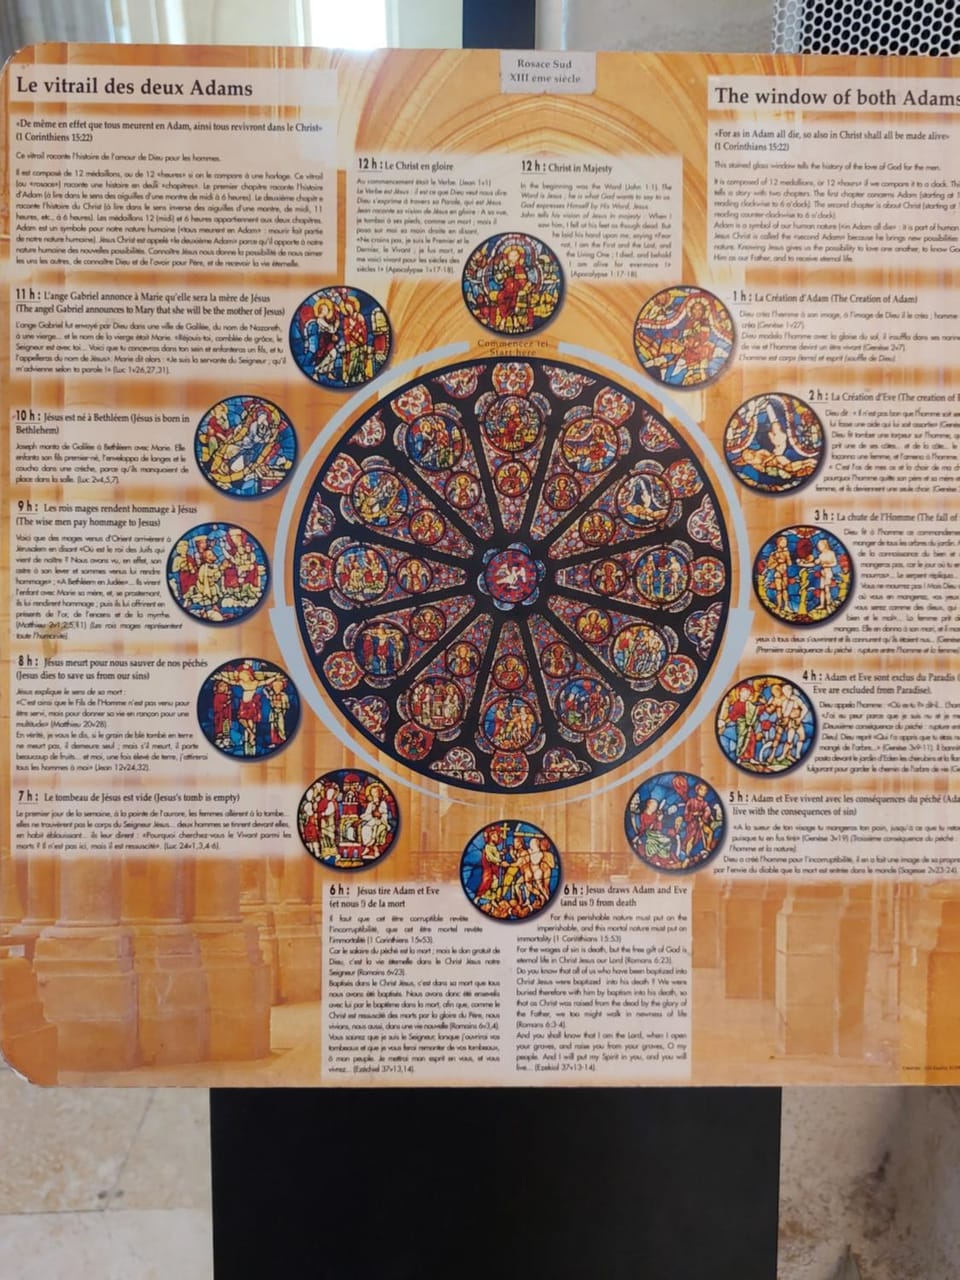 Rosace Sud
XIII ème siècle
Le vitrail des deux Adams
«De même en effet que tous meurent en Adam, ainsi tous revivront dans le Christ»
(1 Corinthiens 15:22)
Ce vitrail raconte l'histoire de l'amour de Dieu pour les hommes.
Il est composé de 12 médaillons, ou 12 «heures» si on le compare à une horloge. Ce vitrail
(ou «rosace») raconte une histoire en deux «chapitres». Le premier chapitre raconte l'histoire
d'Adam (à lire dans le sens des aiguilles d'une montre de midi à 6 heures). Le deuxième chapitre
raconte l'histoire du Christ (à lire dans le sens inverse des aiguilles d'une montre, de midi, 11
heures, etc., à 6 heures). Les médaillons 12 (midi) et 6 heures appartiennent aux deux chapitres.
Adam est un symbole pour notre nature humaine («tous meurent en Adam» : mourir fait partie
de notre nature humaine). Jésus Christ est appelé «le deuxième Adam» parce qu'il apporte à notre
nature humaine des nouvelles possibilités. Connaître Jésus nous donne la possibilité de nous aimer
les uns les autres, de connaître Dieu et de l'avoir pour Père, et de recevoir la vie éternelle.
The window of both Adams
«For as in Adam all die, so also in Christ shall all be made alive»
(1 Corinthians 15:22)
This stained glass window tells the history of the love of God for the men.
It is composed of 12 medallions, or 12 «hours» if we compare it to a clock.
tells a story with two chapters. The first chapter concerns Adam (starting at
reading clockwise to 6 o'clock). The second chapter is about Christ (starting at
reading counter-clockwise to 6 o'clock).
Adam is a symbol of our human nature («in Adam all die» : it is part of human
Jesus Christ is called the «second Adam» because he brings new possibilities
nature. Knowing Jesus gives us the possibility to love one another, to know God
Him as our Father, and to receive eternal life.
12 h : Le Christ en gloire
Au commencement était le Verbe. (Jean 1v1)
Le Verbe est Jésus : il est ce que Dieu veut nous dire.
Dieu s'exprime à travers sa Parole, qui est Jésus.
Jean raconte sa vision de Jésus en gloire : A sa vue,
je tombai à ses pieds, comme un mort ; mais il
posa sur moi sa main droite en disant,
«Ne crains pas, je suis le Premier et le
Dernier, le Vivant ; je fus mort, et
me voici vivant pour les siècles des
siècles !» (Apocalypse 1v17-18).
12 h : Christ in Majesty
In the beginning was the Word (John 1:1). The
Word is Jesus ; he is what God wants to say to us.
God expresses Himself by His Word, Jesus.
John tells his vision of Jesus in majesty : When I
saw him, I fell at his feet as though dead. But
he laid his hand upon me, saying «Fear
not, I am the First and the Last, and
the Living One ; I died, and behold
I am alive for evermore !»
(Apocalypse 1:17-18).
11 h : L'ange Gabriel annonce à Marie qu'elle sera la mère de Jésus
(The angel Gabriel announces to Mary that she will be the mother of Jesus)
L'ange Gabriel fut envoyé par Dieu dans une ville de Galilée, du nom de Nazareth,
à une vierge... et le nom de la vierge était Marie. «Réjouis-toi, comblée de grâce, le
Seigneur est avec toi... Voici que tu concevras dans ton sein et enfanteras un fils, et tu
l'appelleras du nom de Jésus». Marie dit alors : «Je suis la servante du Seigneur ; qu'il
m'advienne selon ta parole !» (Luc 1v26,27,31).
Commencez ici
Start here
1 h : La Création d'Adam (The Creation of Adam)
Dieu créa l'homme à son image, à l'image de Dieu il le créa ; homme
créa (Genèse 1v27).
Dieu modela l'homme avec la glaise du sol, il insuffla dans ses narines
de vie et l'homme devint un être vivant (Genèse 2v7).
L'homme est corps (terre) et esprit (souffle de Dieu).
10 h : Jésus est né à Bethléem (Jésus is born in
Bethlehem)
Joseph monta de Galilée à Bethléem avec Marie. Elle
enfanta son fils premier-né, l'enveloppa de langes et le
coucha dans une crèche, parce qu'ils manquaient de
place dans la salle. (Luc 2v4,5,7).
2 h : La Création d'Eve (The creation of
Dieu dit : « Il n'est pas bon que l'homme soit
lui fasse une aide qui lui soit assortie»
Dieu fit tomber une torpeur sur l'homme,
prit une de ses côtes... et de la côte...
façonna une femme, et l'amena à l'homme
« C'est l'os de mes os et la chair de ma
pourquoi l'homme quitte son père et sa mère
femme, et ils deviennent une seule chair.
9 h : Les rois mages rendent hommage à Jésus
(The wise men pay hommage to Jesus)
Voici que des mages venus d'Orient arrivèrent à
Jérusalem en disant «Où est le roi des Juifs qui
vient de naître ? Nous avons vu, en effet, son
astre à son lever et sommes venus lui rendre
hommage» ; «A Bethléem en Judée»... Ils virent
l'enfant avec Marie sa mère, et, se prosternant,
ils lui rendirent hommage ; puis ils lui offrirent en
présents de l'or, de l'encens et de la myrrhe.
(Matthieu 2v1,2,5,11) (Les rois mages représentent
toute l'humanité).
3 h : La chute de l'Homme (The fall of
Dieu fit à l'homme ce commandement
manger de tous les arbres du jardin.
de la connaissance du bien et
mangeras pas, car le jour où tu en
mourras»... Le serpent répliqua...
Vous ne mourrez pas ! Mais Dieu
où vous en mangerez, vos yeux
vous serez comme des dieux, qui
bien et le mal»... La femme prit
mangea. Elle en donna à son mari, et il
yeux à tous deux s'ouvrirent et ils connurent qu'ils étaient nus...
(Première conséquence du péché : rupture entre l'homme et la femme)
8 h : Jésus meurt pour nous sauver de nos péchés
(Jesus dies to save us from our sins)
Jésus explique le sens de sa mort :
«C'est ainsi que le Fils de l'Homme n'est pas venu pour
être servi, mais pour donner sa vie en rançon pour une
multitude» (Matthieu 20v28).
En vérité, je vous le dis, si le grain de blé tombé en terre
ne meurt pas, il demeure seul ; mais s'il meurt, il porte
beaucoup de fruits... et moi, une fois élevé de terre, j'attirerai
tous les hommes à moi» (Jean 12v24,32).
4 h : Adam et Eve sont exclus du Paradis
Eve are excluded from Paradise).
Dieu appela l'homme : «Où es-tu ?» dit-il.
«J'ai eu peur parce que je suis nu et je
(Deuxième conséquence du péché : rupture
Dieu). Dieu reprit «Qui t'a appris que tu étais
mangé de l'arbre...» (Genèse 3v9-11). Il bannit
posta devant le jardin d'Eden les chérubins et la
fulgurant pour garder le chemin de l'arbre de vie
7 h : Le tombeau de Jésus est vide (Jesus's tomb is empty)
Le premier jour de la semaine, à la pointe de l'aurore, les femmes allèrent à la tombe...
elles ne trouvèrent pas le corps du Seigneur Jésus... deux hommes se tinrent devant elles,
en habit éblouissant... ils leur dirent : «Pourquoi cherchez-vous le Vivant parmi les
morts ? Il n'est pas ici, mais il est ressuscité». (Luc 24v1,3,4-6).
5 h : Adam et Eve vivent avec les conséquences du péché
live with the consequences of sin)
«A la sueur de ton visage tu mangeras ton pain, jusqu'à ce que tu
puisque tu en fus tiré» (Genèse 3v19) (Troisième conséquence du péché :
l'homme et la nature).
Dieu a créé l'homme pour l'incorruptibilité, il en a fait une image de sa propre
par l'envie du diable que la mort est entrée dans le monde (Sagesse 2v23-24).
6 h : Jésus tire Adam et Eve
(et nous !) de la mort
Il faut que cet être corruptible revête
l'incorruptibilité, que cet être mortel revête
l'immortalité (1 Corinthiens 15v53).
Car le salaire du péché est la mort ; mais le don gratuit de
Dieu, c'est la vie éternelle dans le Christ Jésus notre
Seigneur (Romains 6v23).
Baptisés dans le Christ Jésus, c'est dans sa mort que tous
nous avons été baptisés. Nous avons donc été ensevelis
avec lui par le baptême dans la mort, afin que, comme le
Christ est ressuscité des morts par la gloire du Père, nous
vivions, nous aussi, dans une vie nouvelle (Romains 6v3,4).
Vous saurez que je suis le Seigneur, lorsque j'ouvrirai vos
tombeaux et que je vous ferai remonter de vos tombeaux,
ô mon peuple. Je mettrai mon esprit en vous, et vous
vivrez... (Ezéchiel 37v13,14).
6 h : Jesus draws Adam and Eve
(and us !) from death
For this perishable nature must put on the
imperishable, and this mortal nature must put on
immortality (1 Corinthians 15:53)
For the wages of sin is death, but the free gift of God is
eternal life in Christ Jesus our Lord (Romans 6:23).
Do you know that all of us who have been baptized into
Christ Jesus were baptized into his death ? We were
buried therefore with him by baptism into his death, so
that as Christ was raised from the dead by the glory of
the Father, we too might walk in newness of life
(Romans 6:3-4).
And you shall know that I am the Lord, when I open
your graves, and raise you from your graves, O my
people. And I will put my Spirit in you, and you will
live... (Ezekial 37v13-14).